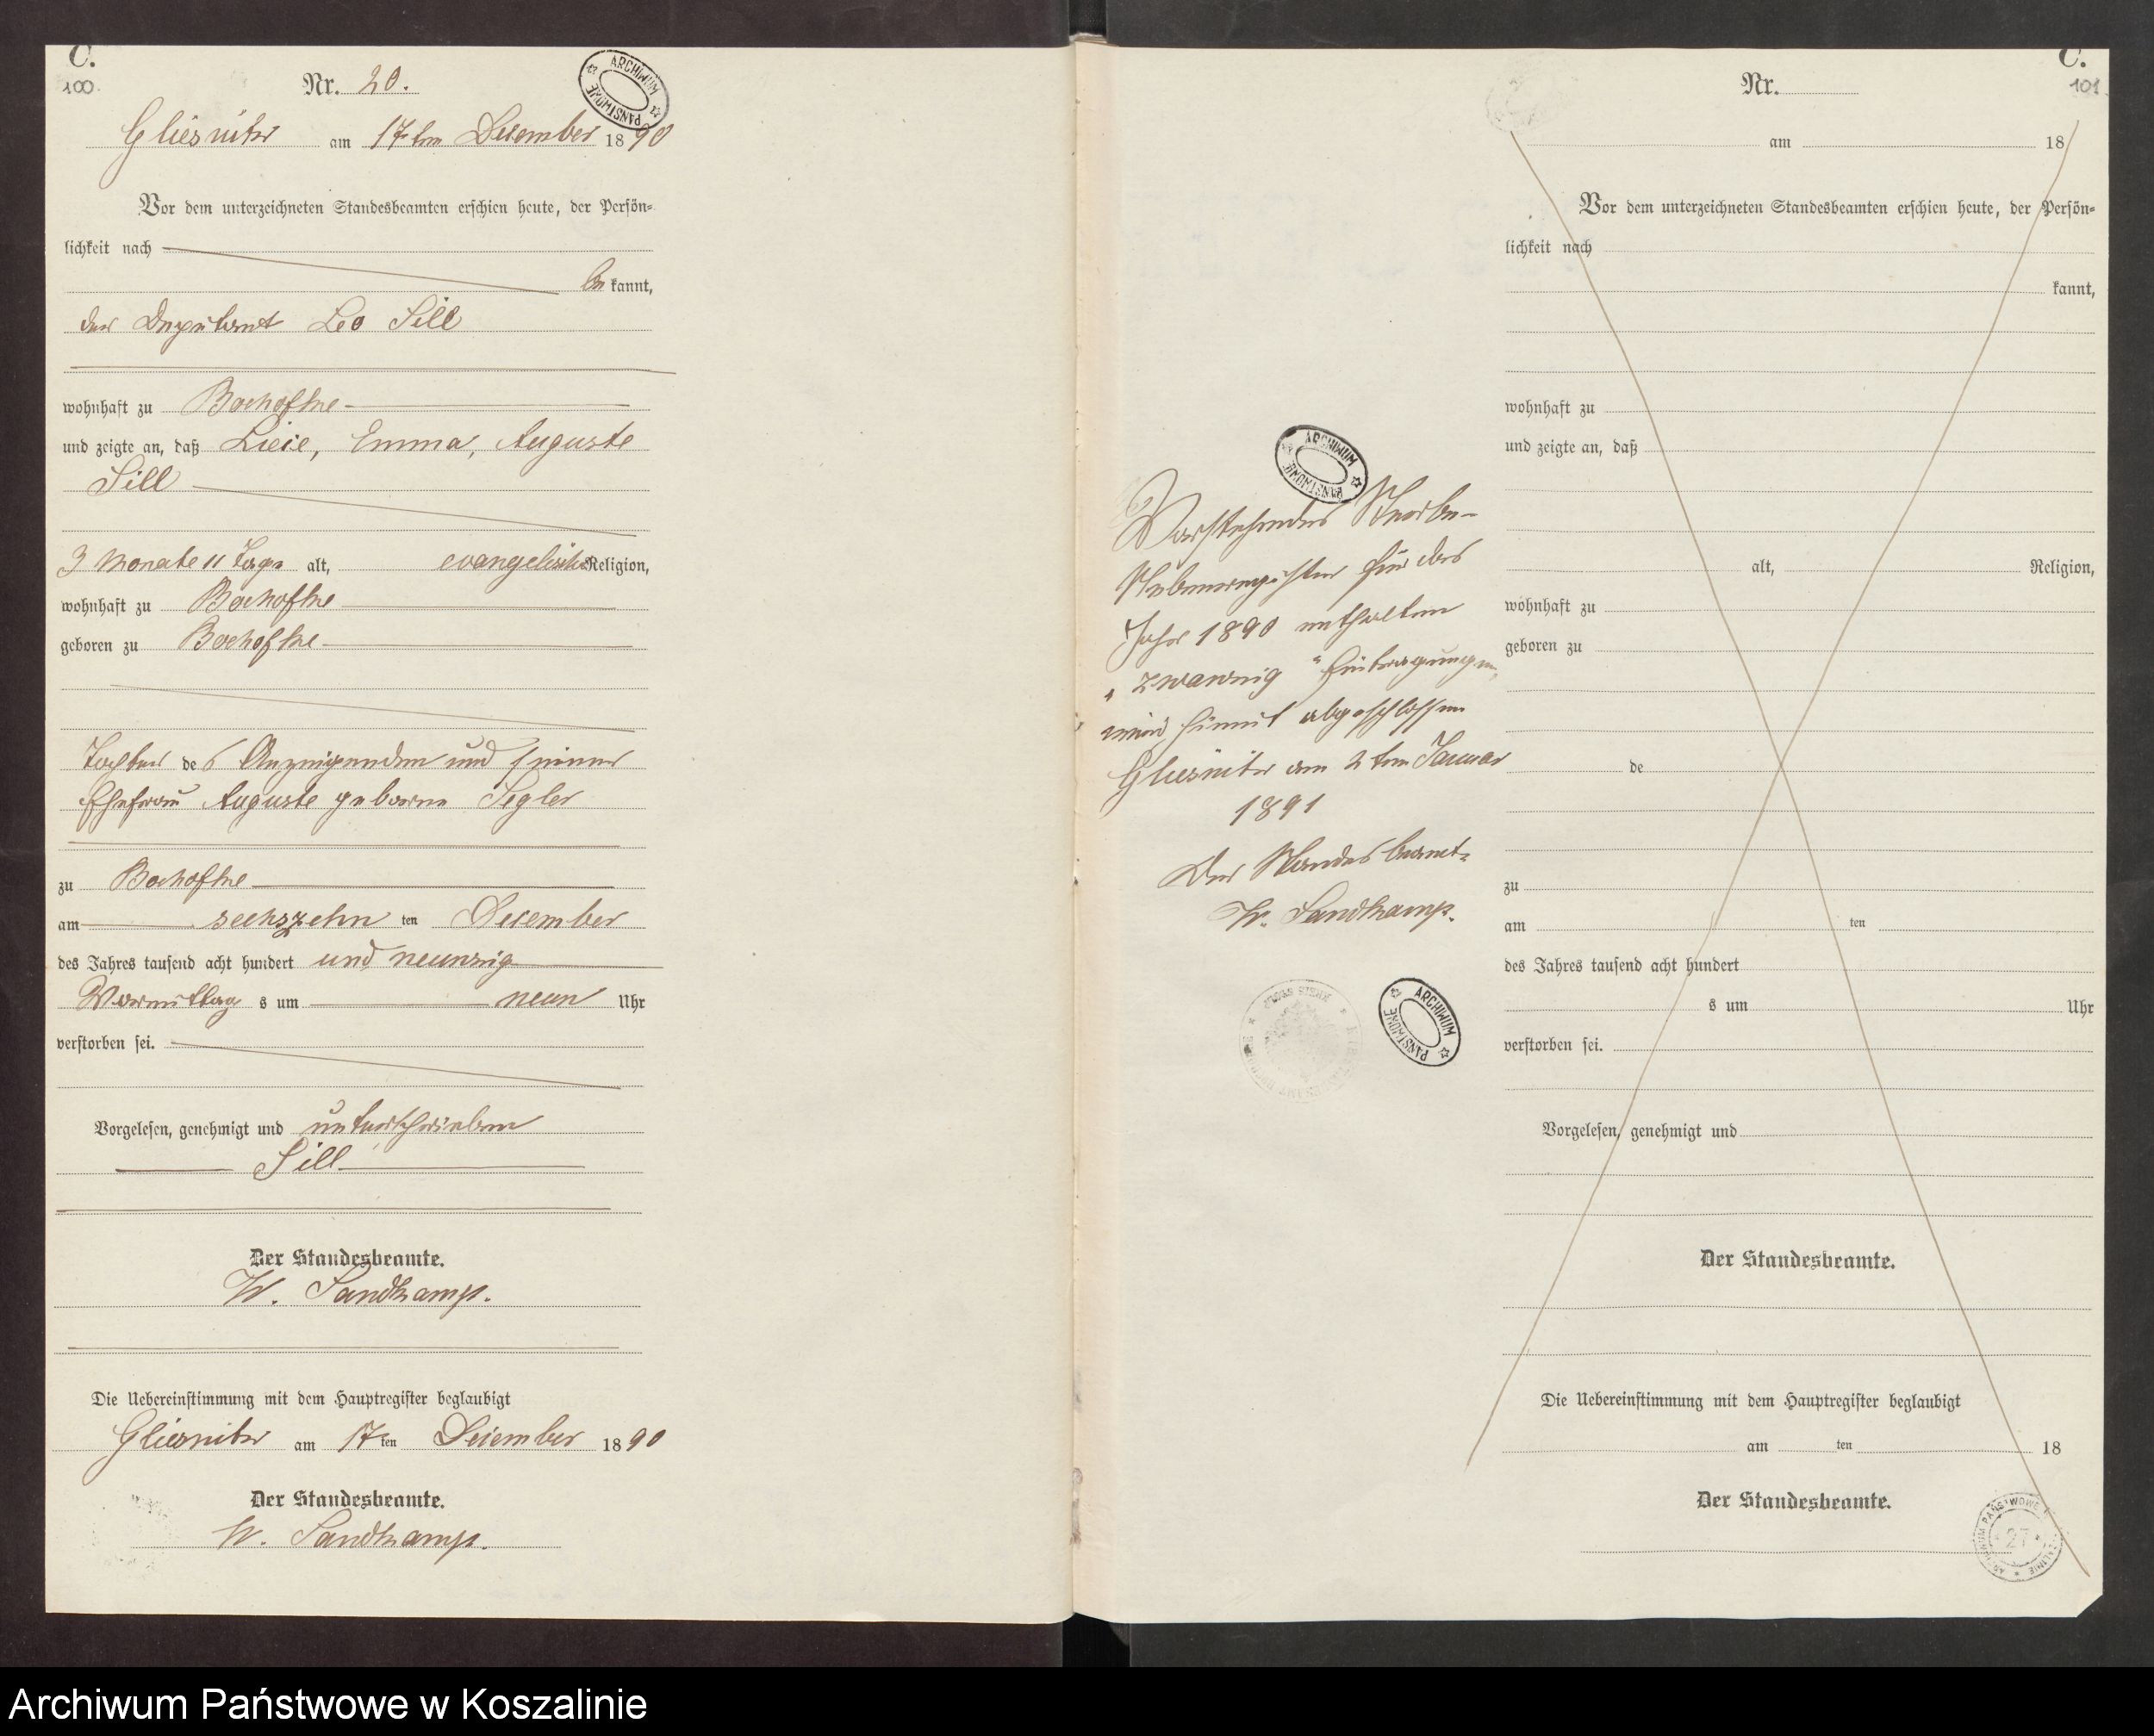 C.
100.
Nr. 20.
ARCHIWUM PAŃSTWOWE
Gliesnitz am 17ten December 1890
Vor dem unterzeichneten Standesbeamten erschien heute, der Persön-
lichkeit nach
be kannt,
der Deputant Leo Sill
wohnhaft zu Bochofke
und zeigte an, daß Liese, Emma, Auguste
Sill
3 Monate 11 Tage alt, evangelische Religion,
wohnhaft zu Bochofke
geboren zu Bochofke
Tochter des Anzeigenden und seiner
Ehefrau Auguste geborne Segler
zu Bochofke
am sechszehn ten December
des Jahres tausend acht hundert und neunzig
Vormittag s um neun Uhr
verstorben sei.
Vorgelesen, genehmigt und unterschrieben
Sill
Der Standesbeamte.
W. Sandkamp.
Die Uebereinstimmung mit dem Hauptregister beglaubigt
Gliesnitz am 17 ten December 1890
Der Standesbeamte.
W. Sandkamp.
ARCHIWUM PAŃSTWOWE
Vorstehendes Sterbe-
Nebenregister für das
Jahr 1890 enthaltend
"zwanzig" Eintragungen,
wird hiermit abgeschlossen
Gliesnitz am 2ten Januar
1891
Der Standesbeamte
W. Sandkamp.
ARCHIWUM PAŃSTWOWE
C.
101.
Nr.
am 18
Vor dem unterzeichneten Standesbeamten erschien heute, der Persön-
lichkeit nach
kannt,
wohnhaft zu
und zeigte an, daß
alt, Religion,
wohnhaft zu
geboren zu
de
zu
am ten
des Jahres tausend acht hundert
s um Uhr
verstorben sei.
Vorgelesen, genehmigt und
Der Standesbeamte.
Die Uebereinstimmung mit dem Hauptregister beglaubigt
am ten 18
Der Standesbeamte.
Archiwum Państwowe w Koszalinie